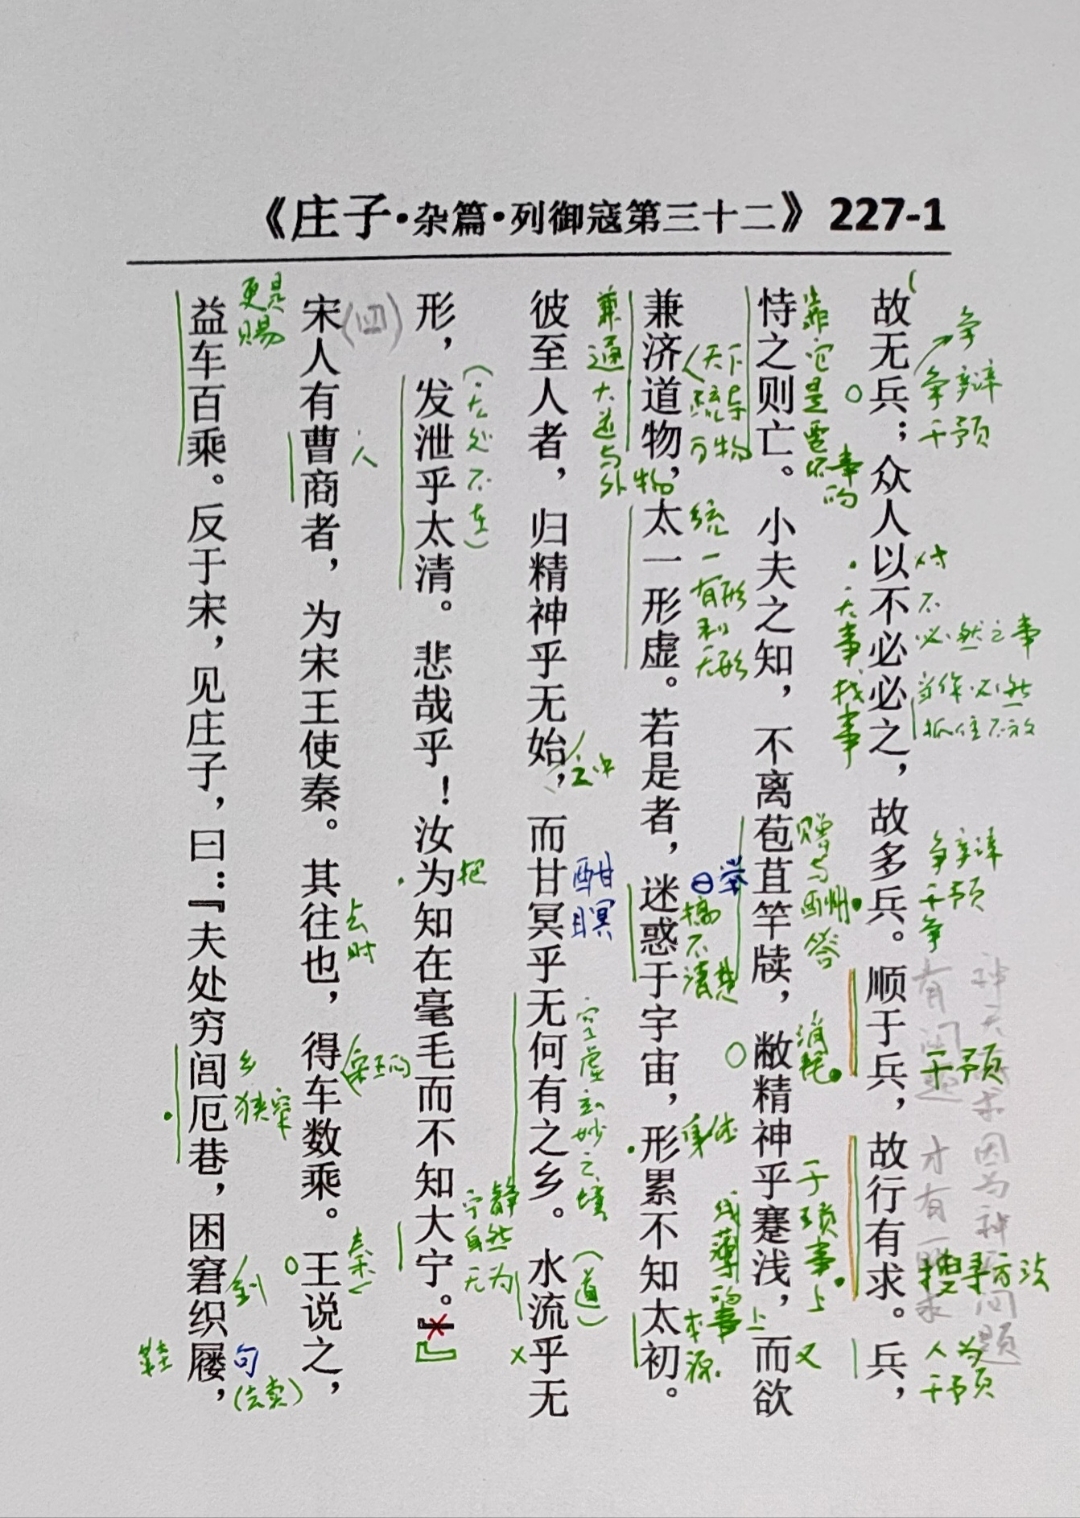 《庄子·杂篇·列御寇第三十二》227-1
故无兵；众人以不必必之，故多兵。顺于兵，故行有求。兵，
恃之则亡。小夫之知，不离苞苴竿牍，敝精神乎蹇浅，而欲
兼济道物，太一形虚。若是者，迷惑于宇宙，形累不知太初。
彼至人者，归精神乎无始，而甘冥乎无何有之乡。水流乎无
形，发泄乎太清。悲哉乎！汝为知在毫毛而不知大宁。
宋人有曹商者，为宋王使秦。其往也，得车数乘。王说之，
益车百乘。反于宋，见庄子，曰：『夫处穷闾厄巷，困窘织屦，
争
争辩
干预
对
不
必然之事
当作必然
抓住不放
争辩
干预
争
干预
搜寻方法
人为
干预
靠它是要坏事的
大事找事
赠与酬答
消耗
于琐事上
浅薄的事上
又
兼通大道与外物
天下
万物
统一有形和无形
搞不清楚
身体
本源
之中
酣
瞑
空虚玄妙之境
（道）
（无处不在）
把
宁静
自然
无为
（四）
人
去时
宋王的
秦
更是
赐
乡
狭窄
到
句
（去卖）
鞋